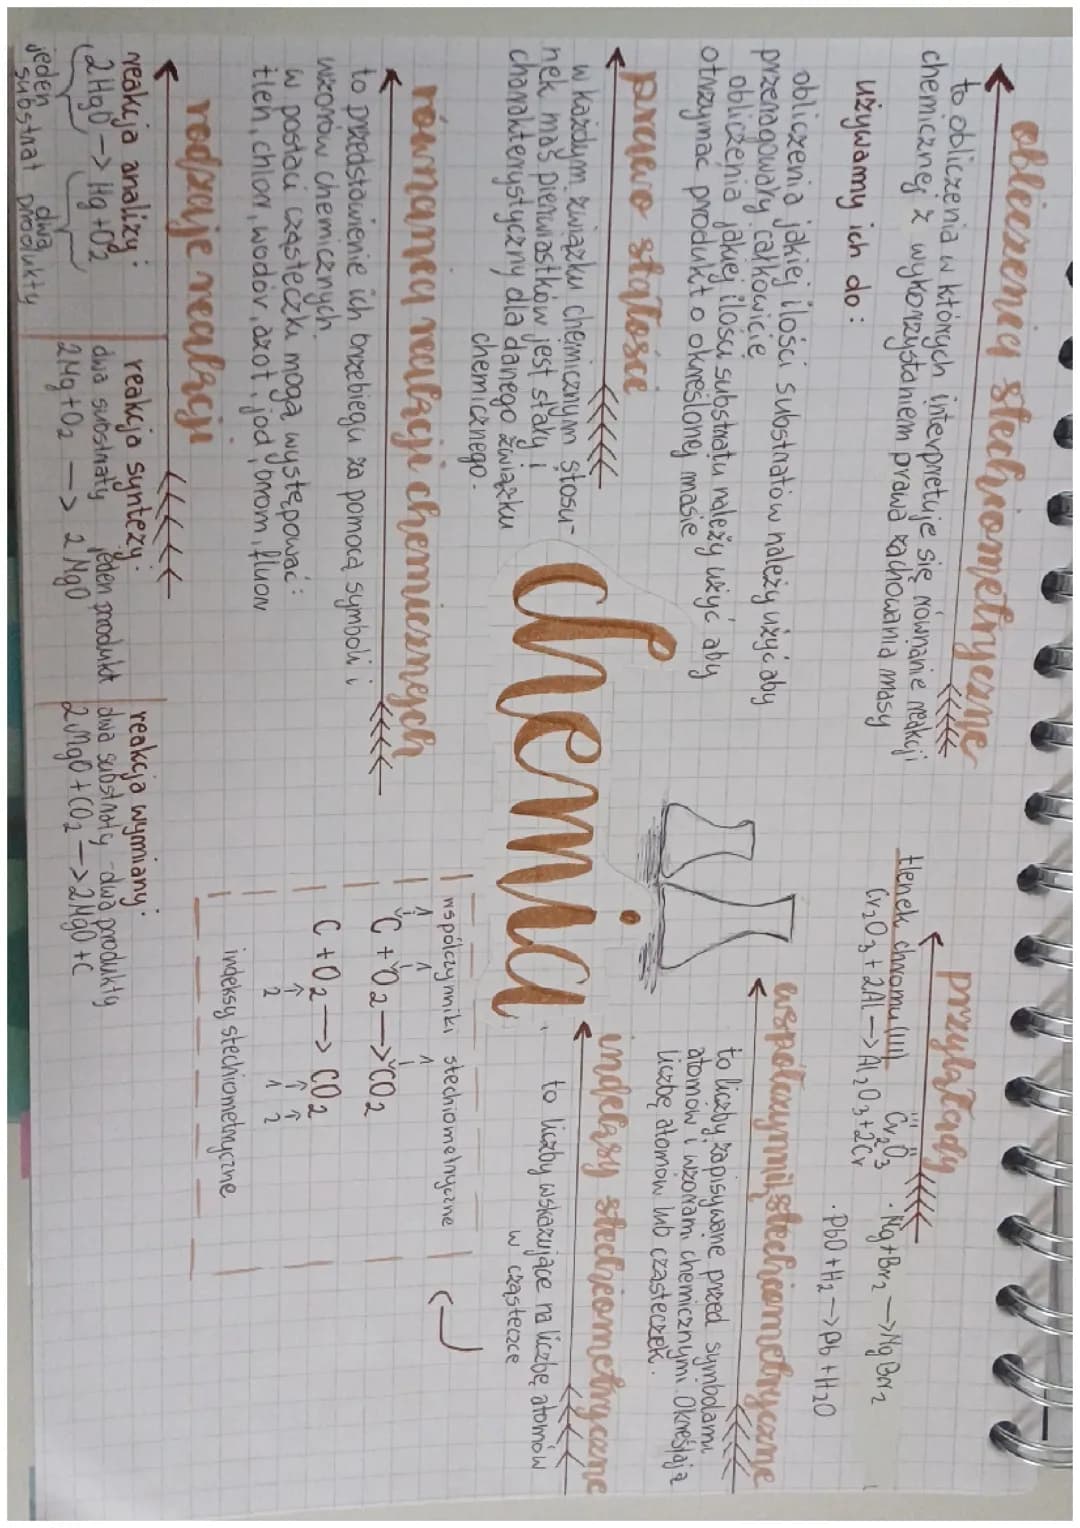 obliczenia stechiometryczne
to obliczenia w których interpretuje się równanie reakcji
chemicznej z wykorzystaniem prawa zachowania masy
używamy ich do:
obliczenia jakiej ilości substratów należy użyć aby
przereagowały całkowicie
obliczenia jakiej ilości substratu należy użyć aby
otrzymać produkt o określonej masie
prawo stałości
w każdym związku chemicznym stosu-
nek mas pierwiastków jest stały i
charakterystyczny dla danego związku
chemicznego.
równania reakcji chemicznych
to przedstawienie ich przebiegu za pomocą symboli i
wzorów chemicznych.
w postaci cząsteczki mogą występować:
tlen, chlor, wodór, azot, jod, brom, fluor
rodzaje reakcji
reakcja analizy:
2HgO -> Hg + O2
jeden substrat
dwa produkty
reakcja syntezy:
dwa substraty jeden produkt
2Mg + O2 -> 2MgO
reakcja wymiany:
dwa substraty - dwa produkty
2MgO + CO2 -> 2MgO + C
chemia
przykłady
tlenek chromu(III) Cr2O3
Cr2O3 + 2Al -> Al2O3 + 2Cr
· Mg + Br2 -> MgBr2
· PbO + H2 -> Pb + H2O
współczynniki stechiometryczne
to liczby zapisywane przed symbolami
atomów i wzorami chemicznymi. Określają
liczbę atomów lub cząsteczek.
indeksy stechiometryczne
to liczby wskazujące na liczbę atomów
w cząsteczce
współczynniki stechiometryczne
1 1 1
C + O2 -> CO2
C + O2 -> CO2
2 1 2
indeksy stechiometryczne